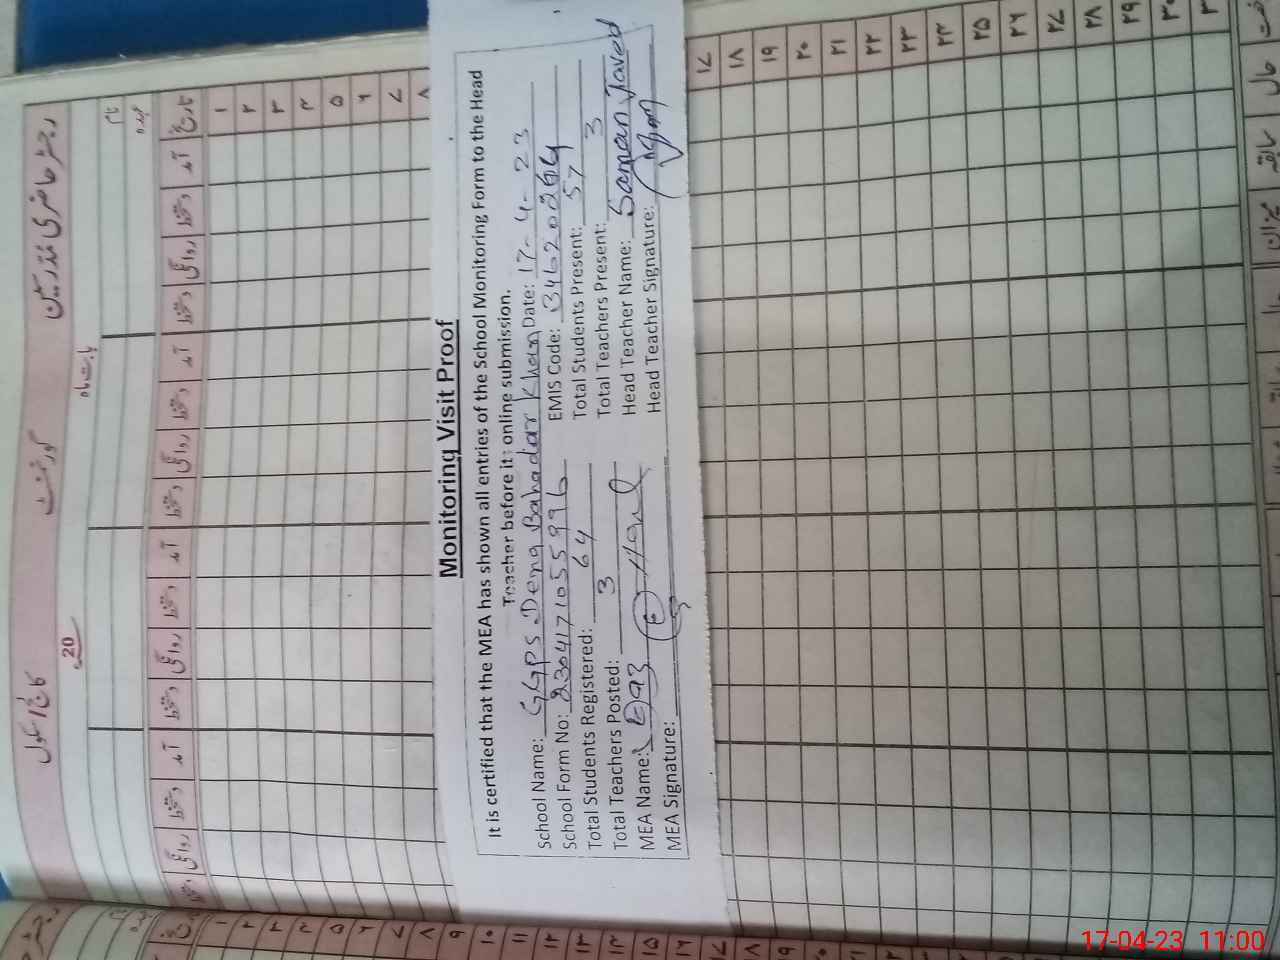 رجسٹر حاضری مدرسین
گورنمنٹ
کالج/سکول
بابت ماہ
20
نام
عہدہ
تاریخ آمد دستخط روانگی دستخط آمد دستخط روانگی دستخط آمد دستخط روانگی دستخط آمد دستخط روانگی دستخط
۱
۲
۳
۴
۵
۶
۷
۸
Monitoring Visit Proof
It is certified that the MEA has shown all entries of the School Monitoring Form to the Head
Teacher before it; online submission.
School Name: GGPS Deng Bahadar Khan Date: 17-4-23
School Form No: 230417105599 EMIS Code: 34620264
Total Students Registered: 64 Total Students Present: 57
Total Teachers Posted: 3 Total Teachers Present: 3
MEA Name: Head Teacher Name: Saman Javed
MEA Signature: Head Teacher Signature:
۱۷
۱۸
۱۹
۲۰
۲۱
۲۲
۲۳
۲۴
۲۵
۲۶
۲۷
۲۸
۲۹
۳۰
۳۱
حال سابقہ میزان
۱
۲
۳
۴
۵
۶
۷
۸
۹
۱۰
۱۱
۱۲
۱۳
۱۴
۱۵
۱۶
۱۷
17-04-23 11:00